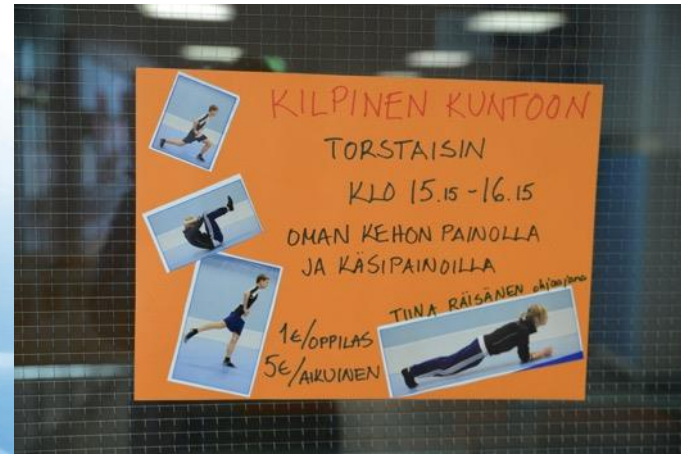 KILPINEN KUNTOON
TORSTAISIN
KLO 15.15-16.15
OMAN KEHON PAINOLLA
JA KÄSIPAINOILLA
TIINA RÄISÄNEN ohjaajana
1€/OPPILAS
5€/AIKUINEN